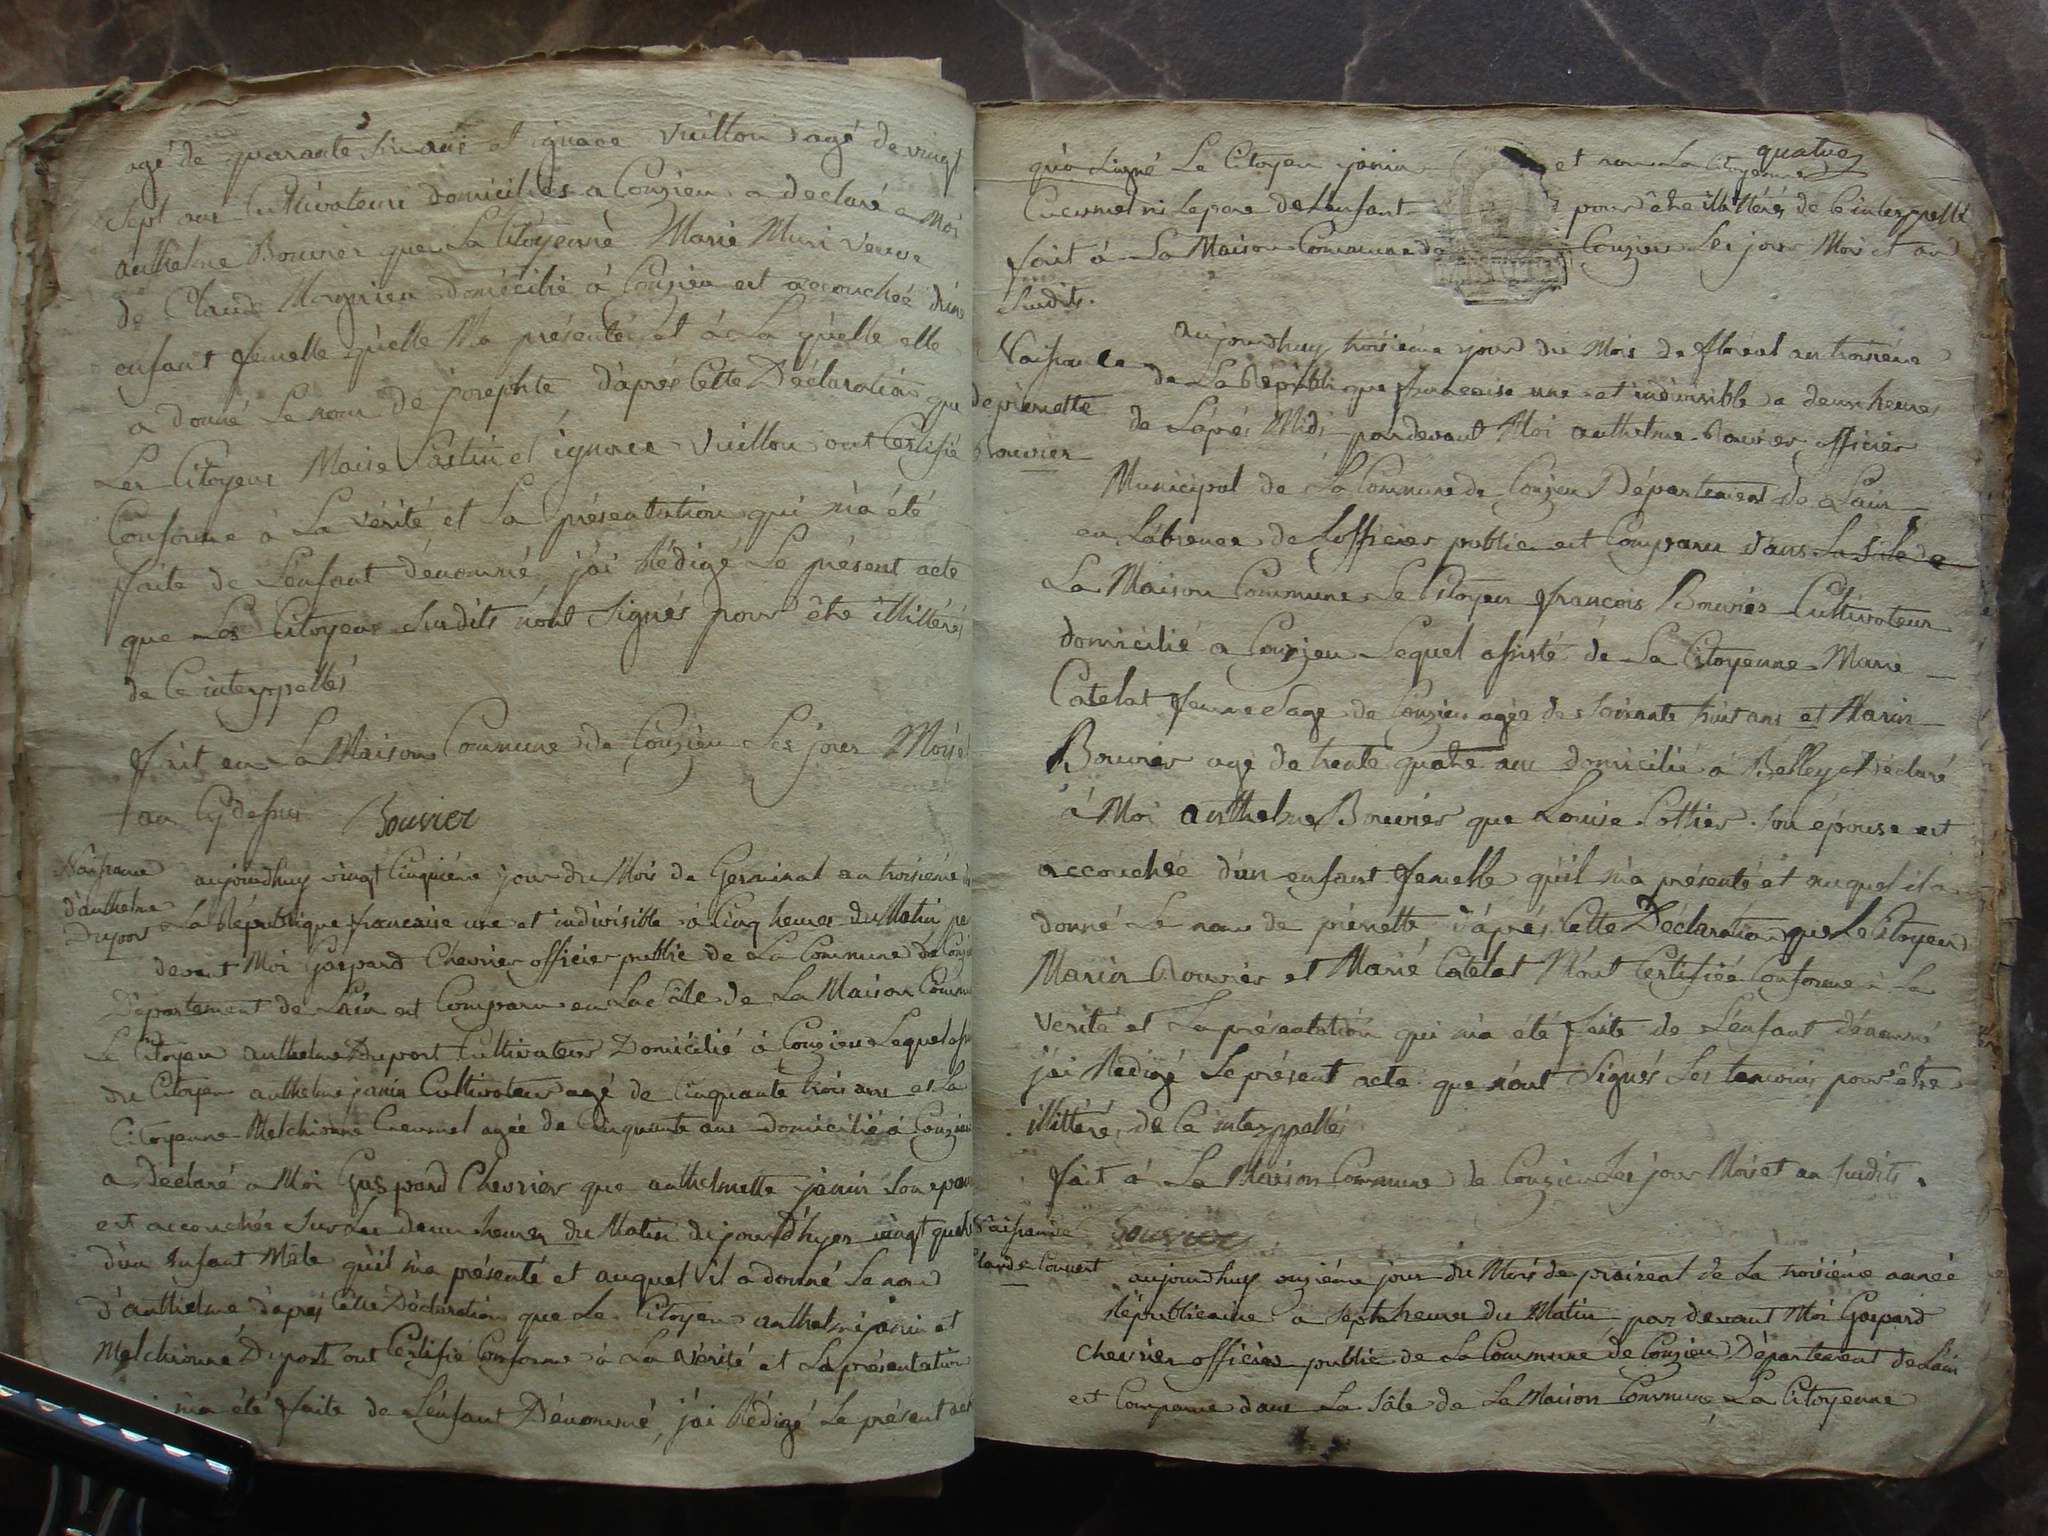 agé de quarante six ans et ignace vuillou agé de vingt
sept ans Cultivateurs domiciliés a Conzieu a declaré a Moi
anthelme Bouvier que La Citoyenne Marie Muri veuve
de Claude domicilié à Conzieu est accouchée d'un
enfant femelle qu'elle Ma présentée et à La quelle elle
a donné Le nom de josephte d'après Cette Déclaration que
Les Citoyens Marie et ignace vuillou ont Certifié
Conforme à La vérité et La présentation qui m'a été
faite de L'enfant dénommé, j'ai Rédigé Le présent acte
que Les Citoyens Susdits n'ont Signés pour être illitérés
de Ce interppellés
fait en La Maison Commune de Conzieu Les jours Mois et
an Cy dessus Bouvier
Naissance
d'anthelme
Dupont
aujourdhuy vingt Cinquiéme jour du Mois de Germinal an troisiéme de
La République francaise une et indivisible à Cinq heures du Matin par
devant Moi Gaspard Chevrier officier public de La Commune de Conzieu
Département de L'ain est Comparu en La Sâle de La Maison Commune
Le Citoyen anthelme Dupont Cultivateur Domicilié à Conzieu Lequel assi
du Citoyen anthelme janin Cultivateur agé de Cinquante trois ans et La
Citoyenne Melchionne Cucumel agée de Cinquante ans domicilié à Conzieu
a Declaré a Moi Gaspard Chevrier que anthelmette janin Son epouse
est accouchée Sur Les deux heures du Matin du jour d'hyer vingt quatre
d'un Enfant Mâle qu'il m'a présenté et auquel il a donné Le nom
d'anthelme d'après Cette Déclaration que Le Citoyen anthelme janin et
Melchionne Dupont ont Certifié Conforme à La Vérité et La présentation
m'a été faite de L'enfant Dénommé, j'ai Rédigé Le présent acte
quatre
qu'a Signé Le Citoyen janin et non La Citoyenne
Cucumel ni Le pere de L'enfant pour être illitérés de Ce interppellé
fait à La Maison Commune de Conzieu Les jour Mois et an
Susdits.
Naissance
de pierrette
Bouvier
aujourdhuy troisiéme jour du Mois de floréal an troisiéme
de La République francaise une et indivisible a deux heures
de L'aprés Midi pardevant Moi anthelme Bouvier officier
Municipal de La Commune de Conzieu Département de L'ain
en L'absence de L'officier public est Comparu dans La Sâle de
La Maison Commune Le Citoyen françois Bouvier Cultivateur
domicilié a Conzieu Lequel assisté de La Citoyenne Marie
Catelat femme Sage de Conzieu agée de Soixante huit ans et Marin
Bouvier agé de trente quatre ans domicilié à Belley a Déclaré
à Moi anthelme Bouvier que Louise Cottier Son épouse est
accouchée d'un enfant femelle qu'il m'a présenté et auquel il a
donné Le nom de pierrette d'aprés Cette Déclaration que Le Citoyen
Marin Bouvier et Marie Catelat M'ont Certifiée Conforme à La
verité et La présentation qui m'a été faite de L'enfant dénommé
j'ai Rédigé Le présent acte que n'ont Signés Les temoins pour être
illittéré, de Ce interppellés
fait à La Maison Commune de Conzieu Les jour Mois et an Susdits.
Bouvier
Naissance
Claude Convert
aujourdhuy onziéme jour du Mois de prairéal de La troisiéme année
Républicaine a Sept heures du Matin par devant Moi Gaspard
Chevrier officier public de La Commune de Conzieu Département de L'ain
est Comparue dans La Sâle de La Maison Commune La Citoyenne